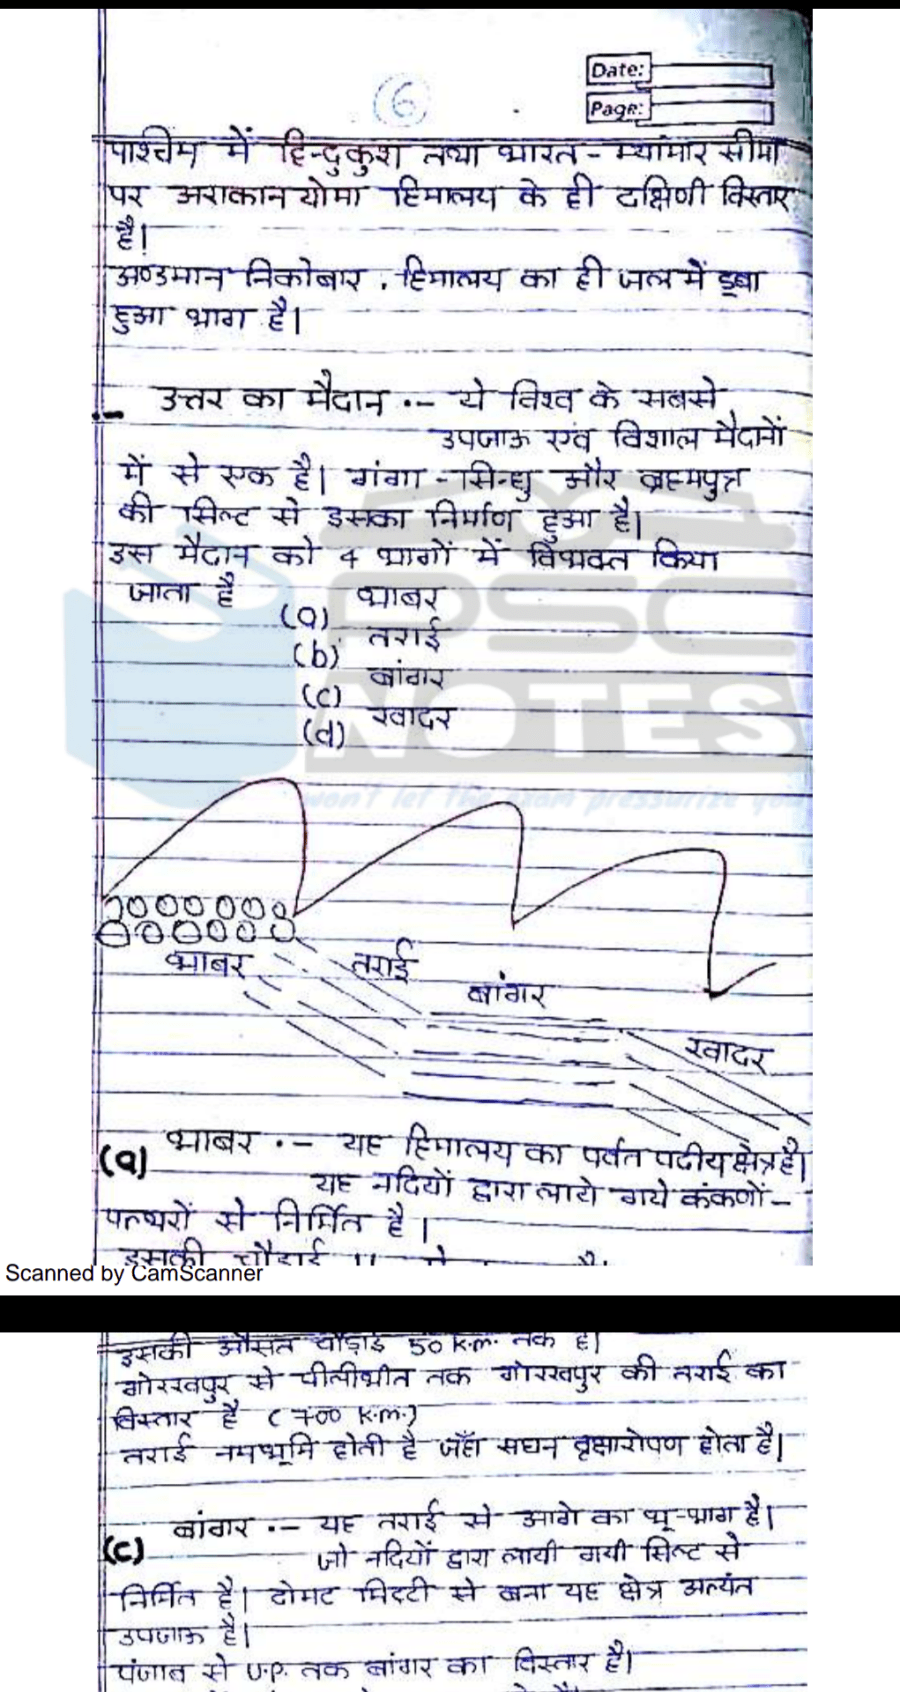 6
Date:
Page:
पाश्चिम में हिन्दुकुश तथा भारत - म्यांमार सीमा
पर अराकान योमा हिमालय के ही दक्षिणी विस्तार
है।
अण्डमान निकोबार, हिमालय का ही जल में डूबा
हुआ भाग है।
उत्तर का मैदान :- ये विश्व के सबसे
उपजाऊ एवं विशाल मैदानों
में से एक है। गंगा - सिन्धु और ब्रह्मपुत्र
की सिल्ट से इसका निर्माण हुआ है।
उस मैदान को 4 भागों में विभक्त किया
जाता है
(a) भाबर
(b) तराई
(c) बांगर
(d) खादर
PSC
NOTES
won't let the exam pressurize you
भाबर
तराई
बांगर
खादर
(a) भाबर :- यह हिमालय का पर्वत पदीय क्षेत्र है।
यह नदियों द्वारा लाये गये कंकणों -
पत्थरों से निर्मित है।
इसकी चौड़ाई
Scanned by CamScanner
इसकी औसत चौड़ाई 50 k.m. तक है।
गोरखपुर से पीलीभीत तक गोरखपुर की तराई का
विस्तार है (700 k.m.)
तराई नमभूमि होती है जहाँ सघन वृक्षारोपण होता है।
(c) बांगर :- यह तराई से आगे का भू-भाग है।
जो नदियों द्वारा लायी गयी सिल्ट से
निर्मित है। दोमट मिट्टी से बना यह क्षेत्र अत्यंत
उपजाऊ है।
पंजाब से U.P. तक बांगर का विस्तार है।